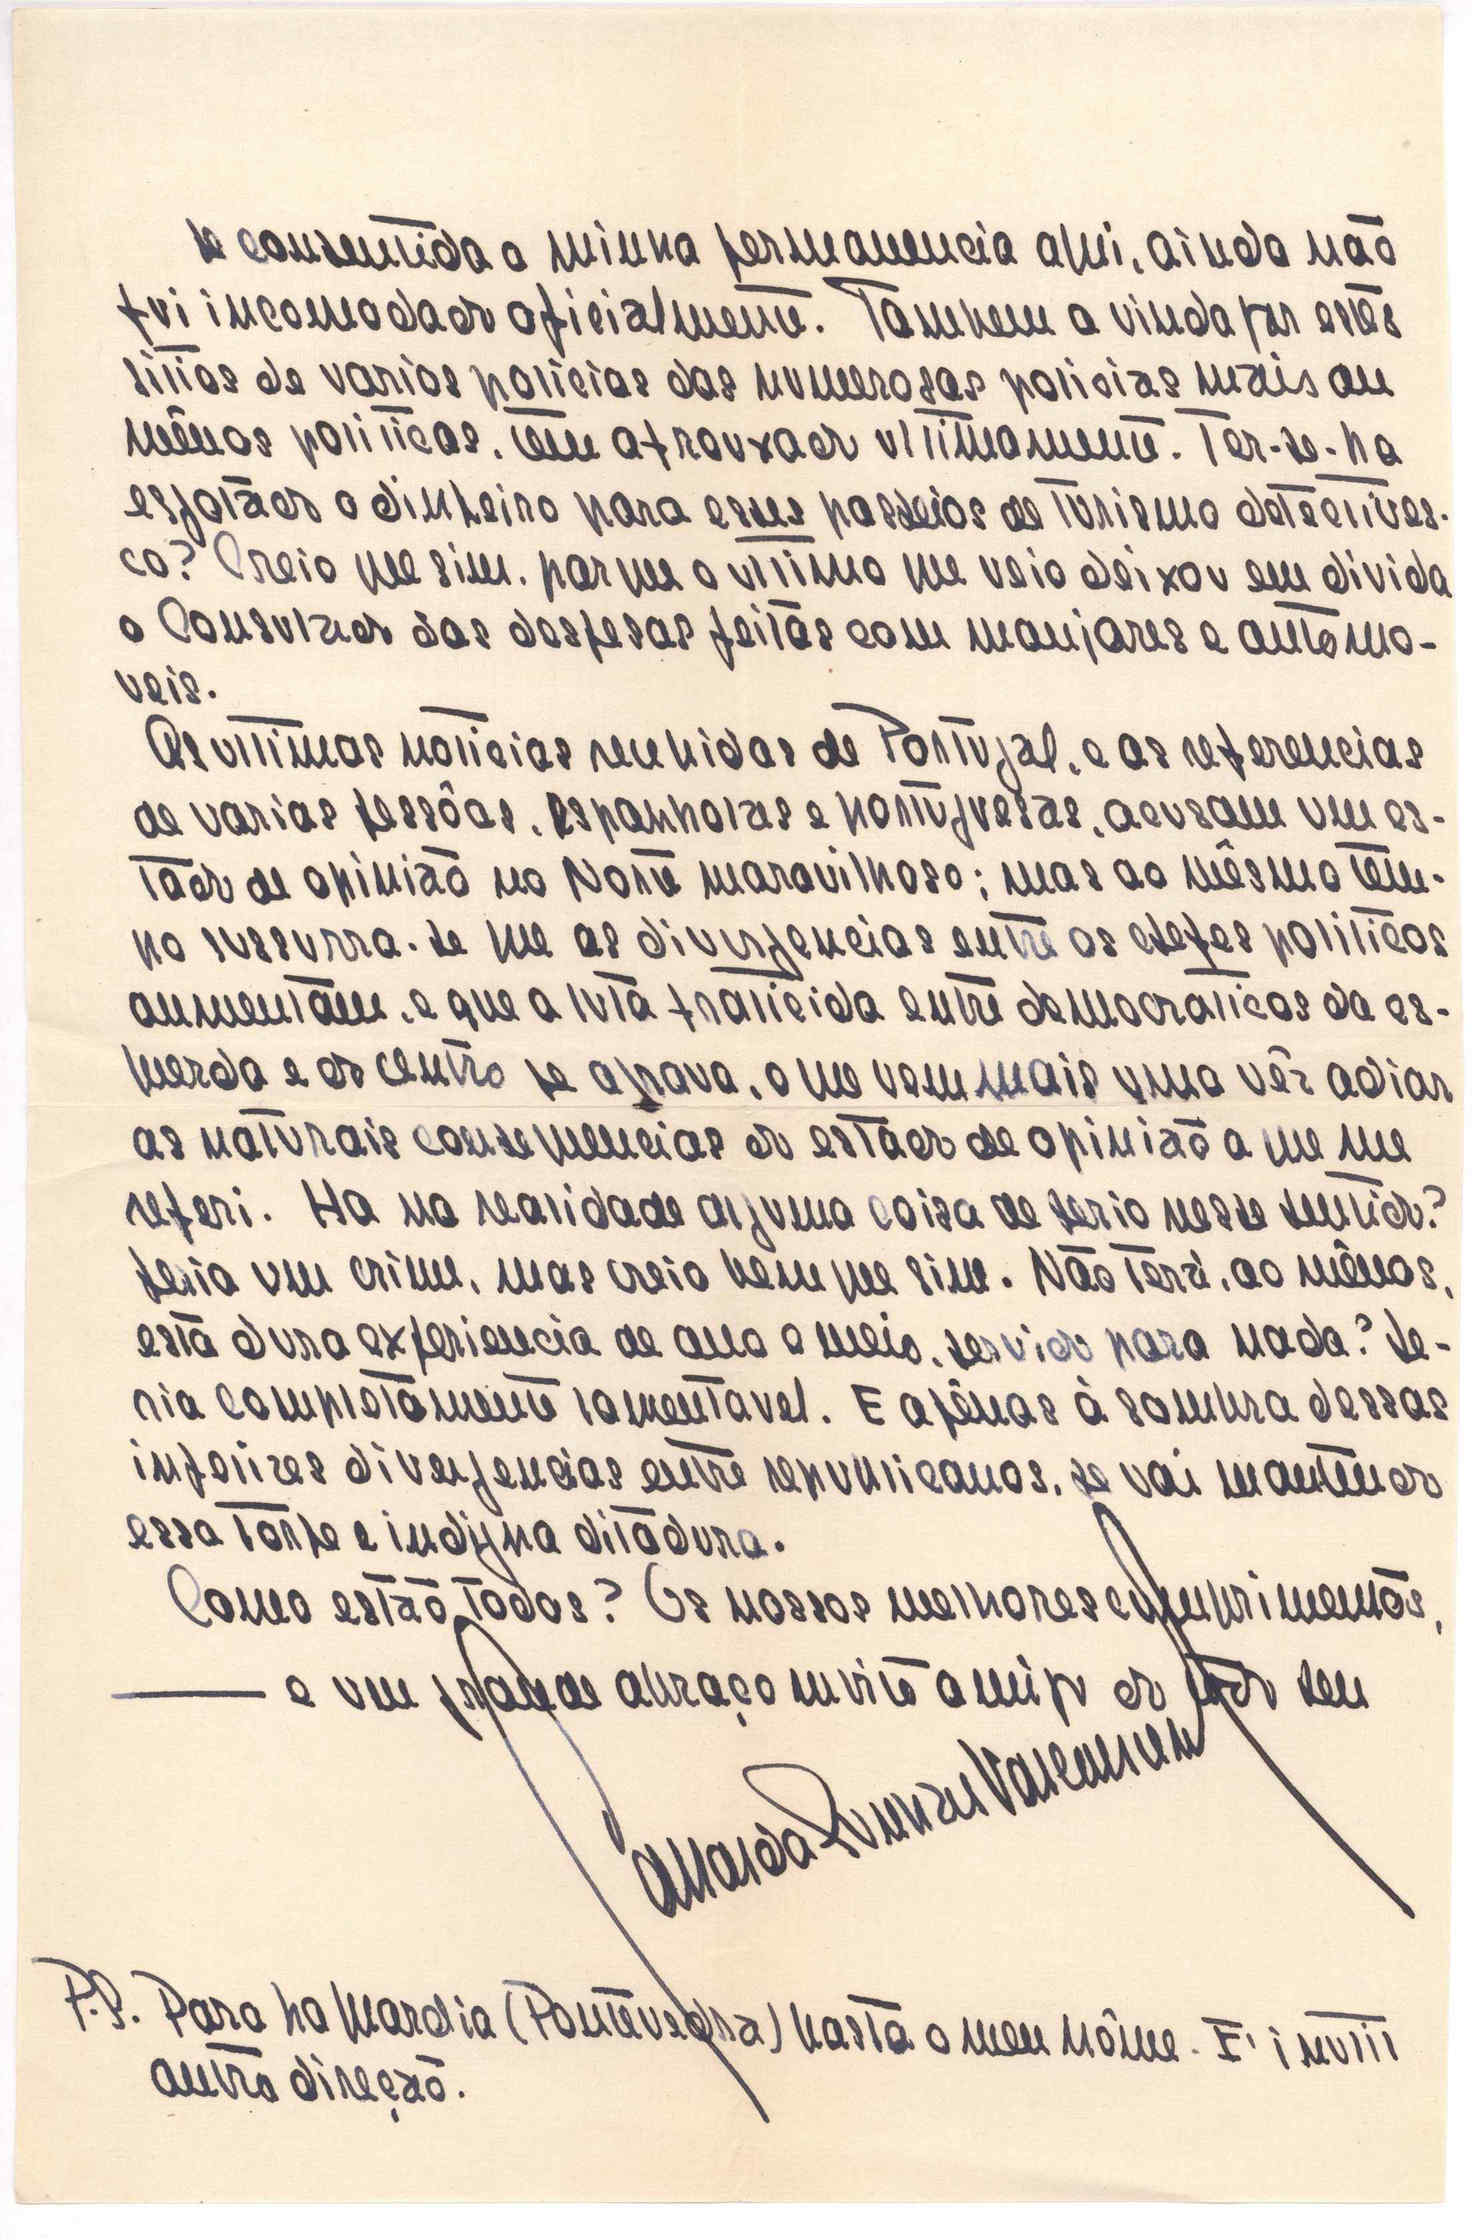 se consentida a minha permanencia aqui, ainda não
fui incomodado oficialmente. Tambem a vinda por estes
sitios de varios policias das numerosas policias mais ou
mênos politicas, tem afrouxado ultimamente. Ter-se-ha
esgotado o dinheiro para esses passeios de turismo detectives-
co? Creio que sim, porque o ultimo que veio deixou em divida
o Consulado das despesas feitas com manjares e automo-
veis.
As ultimas noticias recebidas de Portugal, e as referencias
de varias pessôas, espanholas e portuguesas, acusam um es-
tado de opinião no Norte maravilhoso; mas ao mêsmo tem-
po sussurra-se que as divergencias entre os chefes politicos
aumentam, e que a luta fraticida entre democraticos da es-
querda e do centro se agrava, o que vem mais uma vêz adiar
as naturais consequencias do estado de opinião a que me
referi. Ha na realidade alguma coisa de serio nesse sentido?
Seria um crime, mas creio bem que sim. Não terá, ao mênos,
esta dura experiencia de ano e meio, servido para nada? Se-
ria completamente lamentavel. E apênas à sombra dessas
infelizes divergencias entre republicanos, se vai mantendo
essa torpe e indigna ditadura.
Como estão todos? Os nossos melhores cumprimentos,
e um grande abraço muito amigo do todo seu
P.S. Para La Guardia (Pontevedra) basta o meu nôme. E' inutil
outra direção.